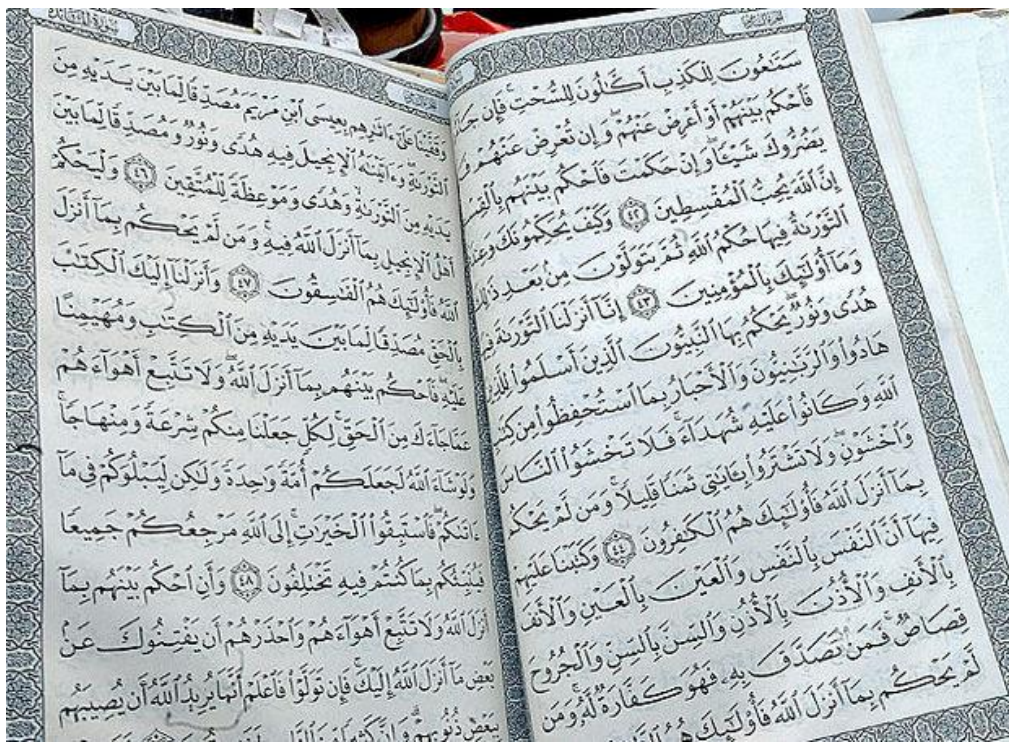 سَمَّٰعُونَ لِلْكَذِبِ أَكَّٰلُونَ لِلسُّحْتِ ۚ فَإِن
فَٱحْكُم بَيْنَهُمْ أَوْ أَعْرِضْ عَنْهُمْ ۖ وَإِن تُعْرِضْ عَنْهُمْ
يَضُرُّوكَ شَيْـًٔا ۖ وَإِنْ حَكَمْتَ فَٱحْكُم بَيْنَهُم
إِنَّ ٱللَّهَ يُحِبُّ ٱلْمُقْسِطِينَ ٤٢ وَكَيْفَ يُحَكِّمُونَكَ
ٱلتَّوْرَىٰةُ فِيهَا حُكْمُ ٱللَّهِ ثُمَّ يَتَوَلَّوْنَ مِنۢ بَعْدِ
وَمَآ أُو۟لَٰٓئِكَ بِٱلْمُؤْمِنِينَ ٤٣ إِنَّآ أَنزَلْنَا ٱلتَّوْرَىٰةَ
هُدًى وَنُورٌ ۚ يَحْكُمُ بِهَا ٱلنَّبِيُّونَ ٱلَّذِينَ أَسْلَمُوا۟
هَادُوا۟ وَٱلرَّبَّٰنِيُّونَ وَٱلْأَحْبَارُ بِمَا ٱسْتُحْفِظُوا۟ مِن
ٱللَّهِ وَكَانُوا۟ عَلَيْهِ شُهَدَآءَ ۚ فَلَا تَخْشَوُا۟ ٱلنَّاسَ
وَٱخْشَوْنِ وَلَا تَشْتَرُوا۟ بِـَٔايَٰتِى ثَمَنًا قَلِيلًا ۚ وَمَن لَّمْ يَحْكُم
بِمَآ أَنزَلَ ٱللَّهُ فَأُو۟لَٰٓئِكَ هُمُ ٱلْكَٰفِرُونَ ٤٤ وَكَتَبْنَا عَلَيْهِمْ
فِيهَآ أَنَّ ٱلنَّفْسَ بِٱلنَّفْسِ وَٱلْعَيْنَ بِٱلْعَيْنِ وَٱلْأَنفَ
بِٱلْأَنفِ وَٱلْأُذُنَ بِٱلْأُذُنِ وَٱلسِّنَّ بِٱلسِّنِّ وَٱلْجُرُوحَ
قِصَاصٌ ۚ فَمَن تَصَدَّقَ بِهِۦ فَهُوَ كَفَّارَةٌ لَّهُۥ ۚ وَمَن
لَّمْ يَحْكُم بِمَآ أَنزَلَ ٱللَّهُ فَأُو۟لَٰٓئِكَ هُمُ
سُورَةُ المَائِدَةِ
وَقَفَّيْنَا عَلَىٰٓ ءَاثَٰرِهِم بِعِيسَى ٱبْنِ مَرْيَمَ مُصَدِّقًا لِّمَا بَيْنَ يَدَيْهِ مِنَ
ٱلتَّوْرَىٰةِ ۖ وَءَاتَيْنَٰهُ ٱلْإِنجِيلَ فِيهِ هُدًى وَنُورٌ وَمُصَدِّقًا لِّمَا بَيْنَ
يَدَيْهِ مِنَ ٱلتَّوْرَىٰةِ وَهُدًى وَمَوْعِظَةً لِّلْمُتَّقِينَ ٤٦ وَلْيَحْكُمْ
أَهْلُ ٱلْإِنجِيلِ بِمَآ أَنزَلَ ٱللَّهُ فِيهِ ۚ وَمَن لَّمْ يَحْكُم بِمَآ أَنزَلَ
ٱللَّهُ فَأُو۟لَٰٓئِكَ هُمُ ٱلْفَٰسِقُونَ ٤٧ وَأَنزَلْنَآ إِلَيْكَ ٱلْكِتَٰبَ
بِٱلْحَقِّ مُصَدِّقًا لِّمَا بَيْنَ يَدَيْهِ مِنَ ٱلْكِتَٰبِ وَمُهَيْمِنًا
عَلَيْهِ ۖ فَٱحْكُم بَيْنَهُم بِمَآ أَنزَلَ ٱللَّهُ ۖ وَلَا تَتَّبِعْ أَهْوَآءَهُمْ
عَمَّا جَآءَكَ مِنَ ٱلْحَقِّ ۚ لِكُلٍّ جَعَلْنَا مِنكُمْ شِرْعَةً وَمِنْهَاجًا ۚ
وَلَوْ شَآءَ ٱللَّهُ لَجَعَلَكُمْ أُمَّةً وَٰحِدَةً وَلَٰكِن لِّيَبْلُوَكُمْ فِى مَآ
ءَاتَىٰكُمْ ۖ فَٱسْتَبِقُوا۟ ٱلْخَيْرَٰتِ ۚ إِلَى ٱللَّهِ مَرْجِعُكُمْ جَمِيعًا
فَيُنَبِّئُكُم بِمَا كُنتُمْ فِيهِ تَخْتَلِفُونَ ٤٨ وَأَنِ ٱحْكُم بَيْنَهُم بِمَآ
أَنزَلَ ٱللَّهُ وَلَا تَتَّبِعْ أَهْوَآءَهُمْ وَٱحْذَرْهُمْ أَن يَفْتِنُوكَ عَنۢ
بَعْضِ مَآ أَنزَلَ ٱللَّهُ إِلَيْكَ ۖ فَإِن تَوَلَّوْا۟ فَٱعْلَمْ أَنَّمَا يُرِيدُ ٱللَّهُ أَن يُصِيبَهُم
بِبَعْضِ ذُنُوبِهِمْ ۗ وَإِنَّ كَثِيرًا مِّنَ